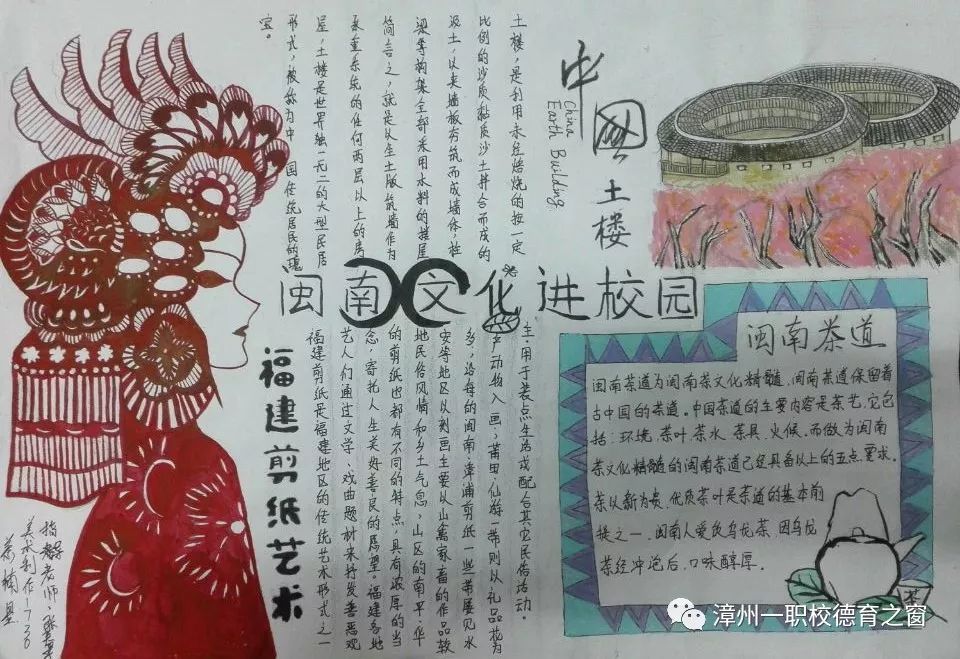 中國土楼
China
Earth Building
土楼，是利用未经焙烧的按一定
比例的沙质黏质沙土拌合而成的
泥土，以夹墙板夯筑而成墙体，柱
梁等构架全部采用木料的楼屋
简言之，就是以生土版筑墙作为
承重系统的任何两层以上的房
屋，土楼是世界独一无二的大型民居
形式，被称为中国传统居民的瑰
宝。
闽南文化进校园
福建剪纸艺术
福建剪纸是福建地区的传统艺术形式之一
艺人们通过文学、戏曲题材来抒发善恶观
念，寄托人生美好善良的愿望。福建各地
的剪纸也都有不同的特点，具有浓厚的当
地民俗风情和乡土气息，山区的南平、华
安等地区以刻画主要以山禽家畜的作品较
多，沿海的闽南、漳浦剪纸一些带展见水
产动物入画，莆田、仙游一带则以礼品花为
主，用于装点生活或配合其它民俗活动。
闽南茶道
闽南茶道为闽南茶文化精髓，闽南茶道保留着
古中国的茶道。中国茶道的主要内容是茶艺，它包
括：环境、茶叶、茶水、茶具、火候。而做为闽南
茶文化精髓的闽南茶道己经具备以上的五点要求。
茶以新为贵，优质茶叶是茶道的基本前
提之一，闽南人爱说乌龙茶，因乌龙
茶经冲泡后，口味醇厚。
茶
指导老师：张
漳州一职校德育之窗